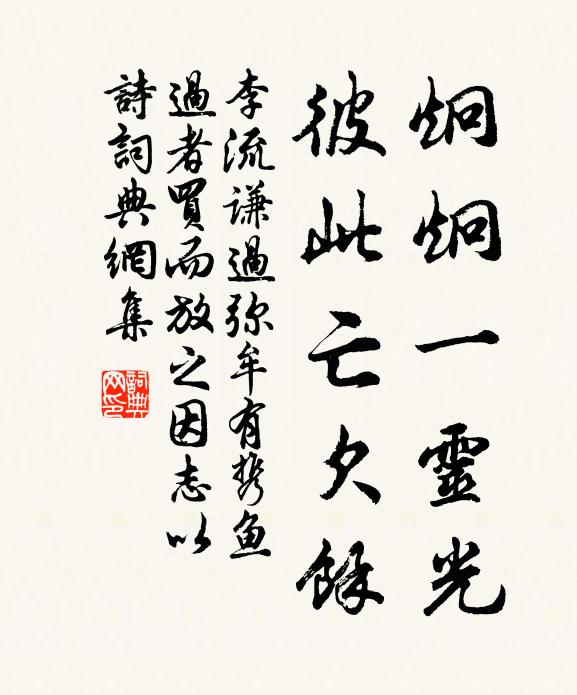 炯炯一靈光
彼此亡欠餘
李流谦過弥牟有携鱼
過者買而放之因志以
詩詞典網集
詞典
网印